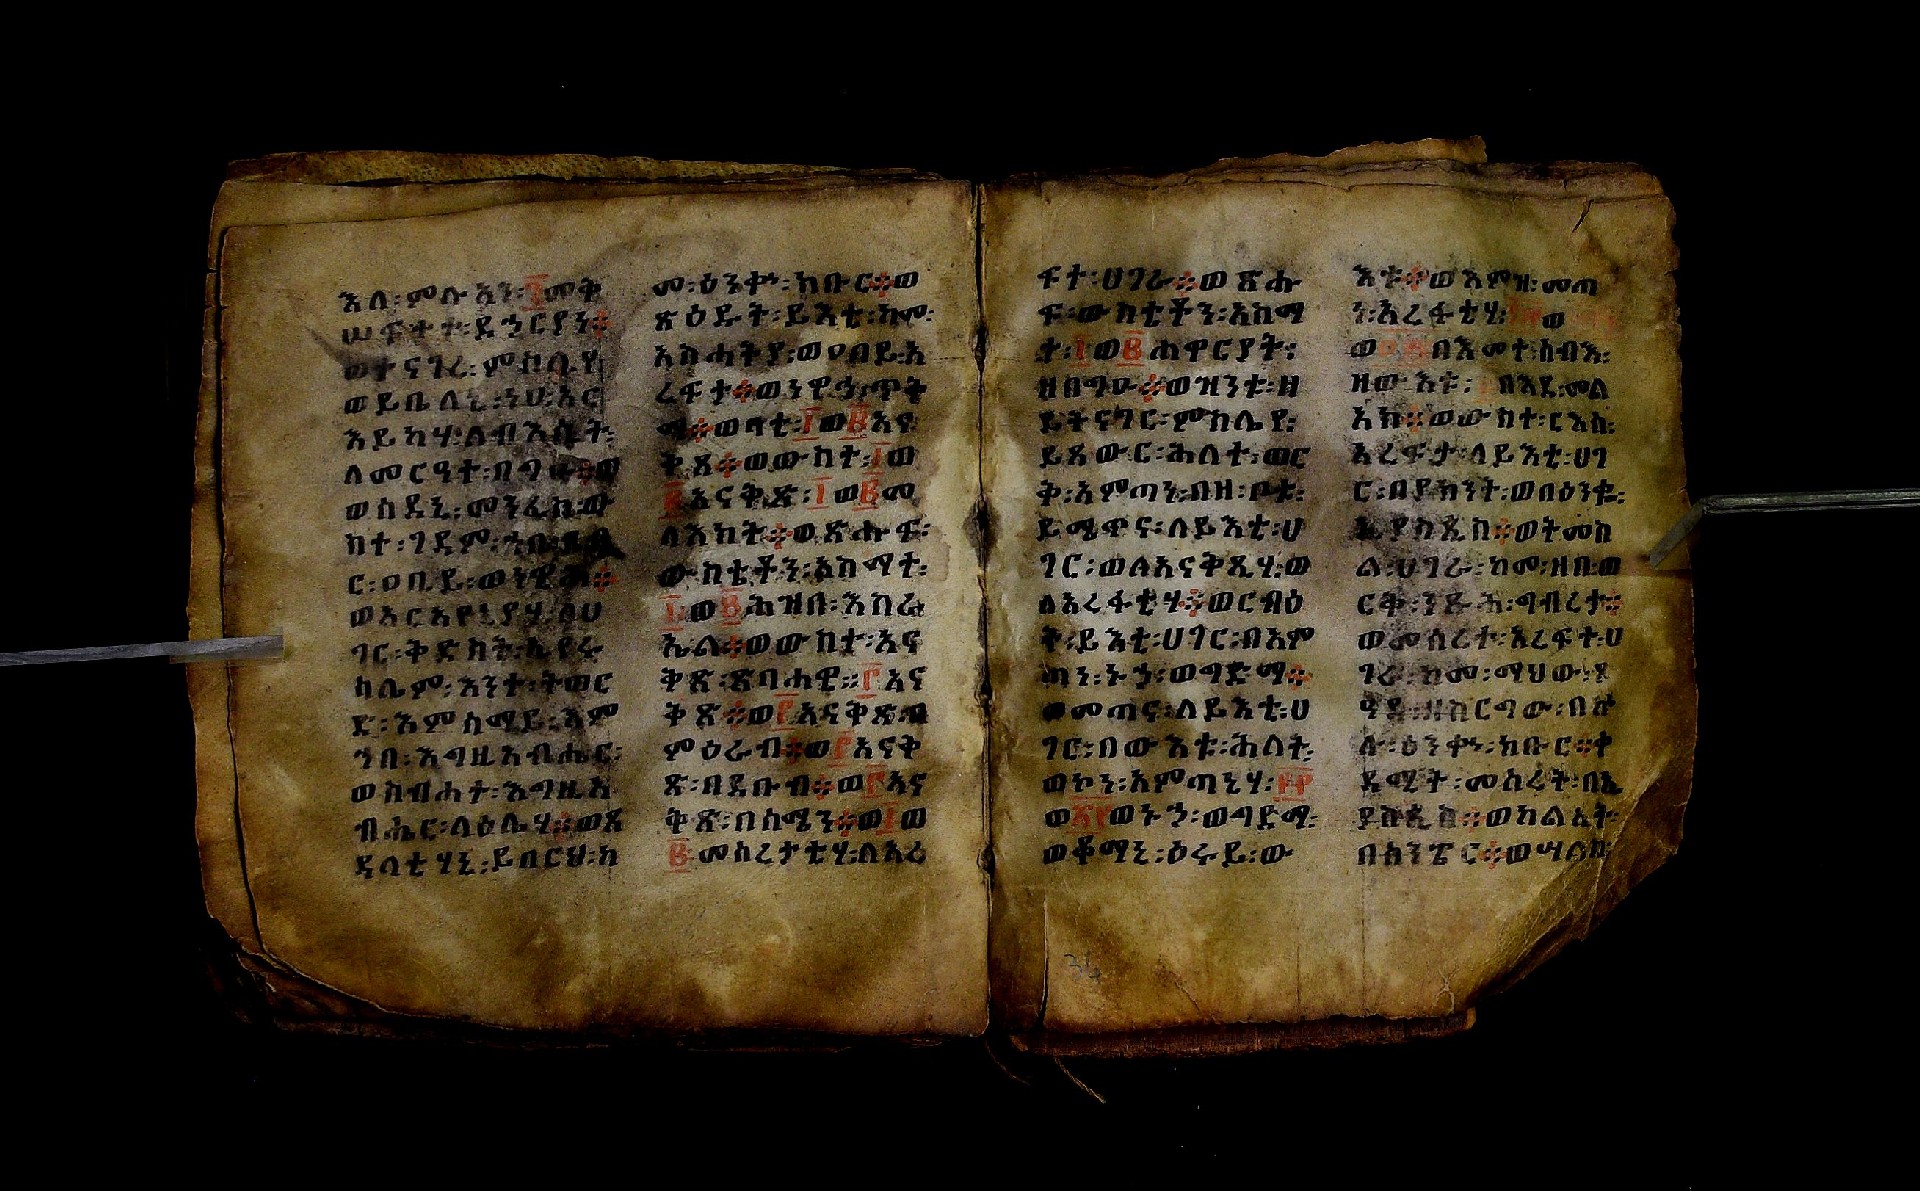 እለ፡ምሉኣን፡፯መቅ
ሠፍተተ፡ደኃርያን።
ወተናገረ፡ምስሌየ
ወይቤለኒ፡ነዐ፡ኣር
እይከሃ፡ለብእሲት፡
ለመርዓተ፡በግዑ።ወ
ወሰደኒ፡መንፈስ፡ው
ስተ፡ገዳም፡ኀበ፡ደብ
ር፡ዐቢይ፡ወነዊኅ።
ወኣርአየኒያሃ፡ለሀ
ገር፡ቅድስት፡ኢየሩ
ሳሌም፡እንተ፡ትወር
ድ፡እምሰማይ፡እም
ኀበ፡እግዚአብሔር፡
ወስብሐተ፡እግዚአ
ብሔር፡ላዕሌሃ።ወጸ
ዳላቲሃኒ፡ይበርህ፡ከ
መ፡ዕንቍ፡ክቡር።ወ
ጽዕዱት፡ይእቲ፡ከመ፡
አስሐትያ፡ወዐበይ፡አ
ረፍታ።ወነዋኃ፡ጥቅ
ማ።ወባቲ፡፲ወ፪አና
ቅጽ።ወውስተ፡፲ወ
፪አናቅጽ፡፲ወ፪መ
ላእክት።ወጽሑፍ፡
ውስቴቶን፡አስማተ፡
፲ወ፪ሕዝበ፡እስራ
ኤል።ወውስተ፡አና
ቅጽ፡ጽባሓዊ።፫አና
ቅጽ።ወ፫አናቅጽ፡በ
ምዕራብ።ወ፫አናቅ
ጽ፡በደቡብ።ወ፫አና
ቅጽ፡በሰሜን።ወ፲ወ
፪መሰረታቲሃ፡ለአረ
ፍተ፡ሀገራ።ወጽሑ
ፍ፡ውስቴቶን፡አስማ
ተ፡፲ወ፪ሐዋርያት፡
ዘበግዑ።ወዝንቱ፡ዘ
ይትናገር፡ምስሌየ፡
ይጸውር፡ሕለተ፡ወር
ቅ፡አምጣነ፡በዘ፡ቦቱ፡
ይሜጥና፡ለይእቲ፡ሀ
ገር፡ወለአናቅጺሃ፡ወ
ለአረፋቲሃ።ወርብዕ
ት፡ይእቲ፡ሀገር፡በአም
ጣነ፡ኑኃ፡ወግድማ።
ወመጠና፡ለይእቲ፡ሀ
ገር፡በውእቱ፡ሕለት፡
ወኮነ፡አምጣኒሃ፡፻፼
ወ፳፻ወኑኃ፡ወግድማ፡
ወቆማኒ፡ዕሩይ፡ው
እቱ።ወእምዝ፡መጠ
ነ፡አረፋቲሃ፡ ወ
በእመተ፡ሰብእ፡
ዘውእቱ፡ በእደ፡መል
አክ።ወውስተ፡ርእሰ፡
አረፍታ፡ለይእቲ፡ሀገ
ር፡በያክንት፡ወበዕንቈ፡
ኢያስጲስ።ወትመስ
ል፡ሀገራ፡ከመ፡ዘበ፡ወ
ርቅ፡ንጹሕ፡ግብረታ።
ወመሰረተ፡አረፍተ፡ሀ
ገራ፡ከመ፡ማህው፡ጸ
ዓዳ፡ዘስርግው፡በኵ
ሉ፡ዕንቍ፡ክቡር።ቀ
ዳሚት፡መሰረት፡በኢ
ያስጲስ።ወካልእት፡
በሰንፔር።ወሣልስ፡